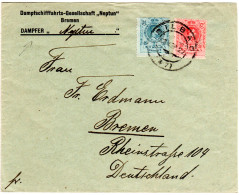 Dampfschifffahrts-Gesellschaft „Neptun"
Bremen
DAMPFER „Neptun"
BILBAO
Frau
Fr. Erdmann
Bremen
Rheinstraße 109
Deutschland